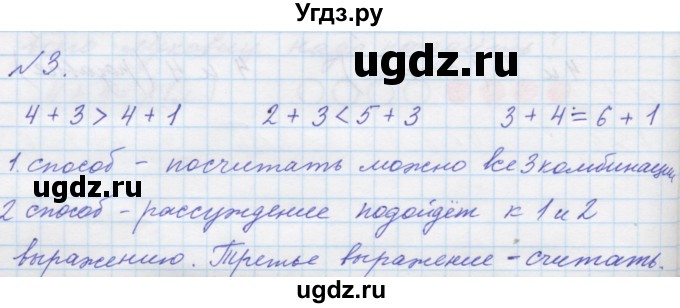 Угдз.ру
№3.
4 + 3 > 4 + 1 2 + 3 < 5 + 3 3 + 4 = 6 + 1
1. способ - посчитать можно все 3 комбинации,
2 способ - рассуждение подойдёт к 1 и 2
выражению. Третье выражение - считать.
ugdz.ru
ugdz.ru
ugdz.ru
ugdz.ru
ugdz.ru
ugdz.ru